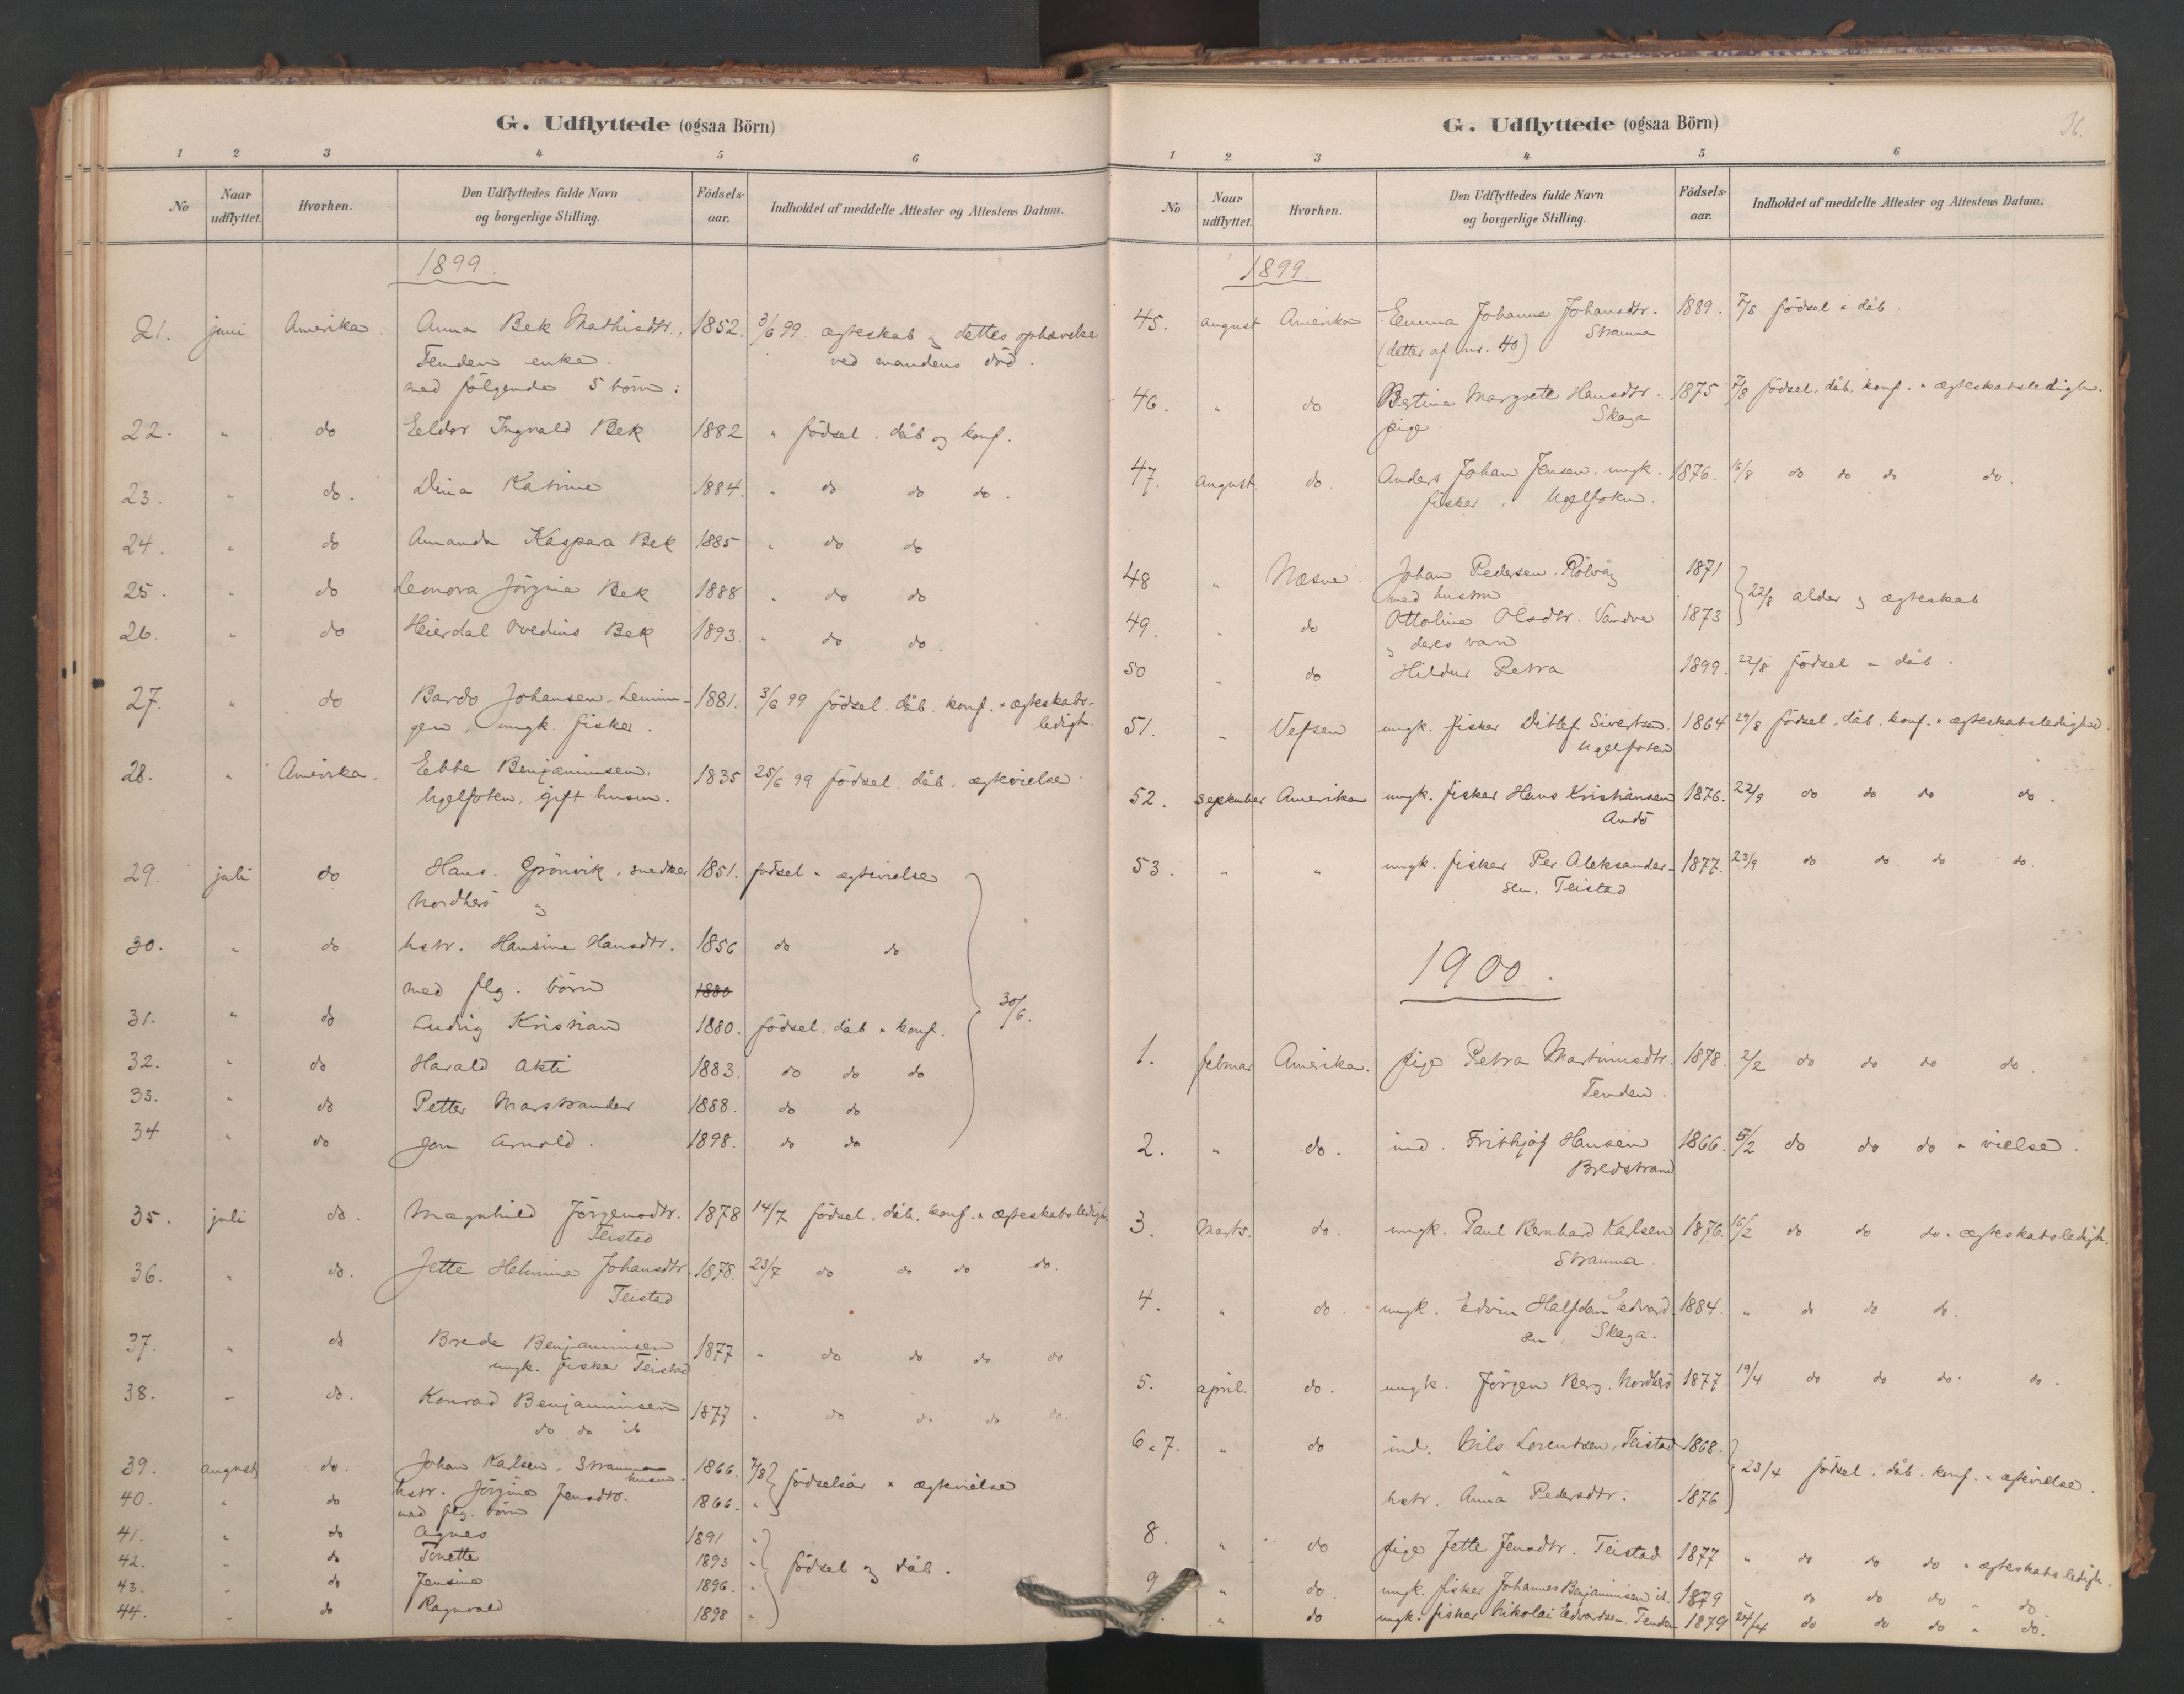 G. Udflyttede (ogsaa Börn)
1 2 3 4 5 6
No Naar udflyttet. Hvorhen. Den Udflyttedes fulde Navn og borgerlige Stilling. Födsels-aar. Indholdet af meddelte Attester og Attestens Datum.
1899
21. juni Amerika. Anna Bek Mathisdtr., 1852. 3/6 99. ægteskab og dettes ophævelse
Tenden enke. ved mandens död.
med fölgende 5 börn:
22. " do Eeldor Ingvald Bek 1882 " födsel. dåb og konf.
23. " do. Dina Katrine 1884. " do do do.
24. " do Amanda Kaspara Bek 1885 " do do
25. " do Leonora Jörgine Bek 1888 " do do
26. " do Heierdal Ovedius Bek 1893. " do do.
27. " do Bardo Johansen. Lemin- 1881. 3/6 99 födsel. dåb. konf. " ægteskabs-
gen, ungk. fisker. ledigh.
28. " Amerika. Ebbe Benjaminsen. 1835 25/6 99 födsel. dåb. ægtevielse
Ugelfoten. gift husm.
29. juli do Hans. Grönvik. snedker 1851. födsel " ægtevielse
Nordherö og
30. " do hstr. Hansine Hansdtr. 1856 do do
med flg. börn 1880
30/6.
31. " do Ludvig Kristian 1880. födsel. dåb " konf.
32. " do Harald Akti 1883. do do do
33. " do Petter Marstrander 1888. do do
34 " do Jon Arnold. 1898. do do
35. juli do. Magnhild Jörgensdtr. 1878 14/7 födsel. dåb. konf. " ægteskabsledigh.
Teistad
36. " do. Jette Helmine Johansdtr. 1878. 23/7 do do do do.
Teistad
37. " do Brede Benjaminsen 1877 " do do do do
ungk. fisker Teistad
38. " do. Konrad Benjaminsen 1877 " do do do do.
do do ib
39. august do. Johan Karlsen. Straumen 1866. 7/8 födselsår " ægtevielse
husm.
40. " do hstr. Jörgine Jensdtr. 1866. "
med flg. börn
41. " do Agnes 1891 "
42. " do Tonette 1893 " födsel og dåb.
43. " do Jensine 1896. "
44. " do Ragnvald 1898 "
G. Udflyttede (ogsaa Börn)
36.
1 2 3 4 5 6
No Naar udflyttet. Hvorhen. Den Udflyttedes fulde Navn og borgerlige Stilling. Födsels-aar. Indholdet af meddelte Attester og Attestens Datum.
1899.
45. august Amerika Emma Johanne Johansdtr. 1889. 7/8 födsel " dåb.
(datter af nr. 40) Strauma
46. " do Bertine Margrete Hansdtr. 1875 7/8 födsel. dåb. konf. " ægteskabsledigh.
pige Skaga
47. august do. Anders Johan Jensen. ungk. 1876. 16/8 do do do do.
fisker. Ugelfoten.
48 " Næsne. Johan Pedersen. Rölvåg 1871
med hustru 22/8 alder og ægteskab
49. " do Ottoline Olsdtr. Vandve 1873
og deres barn
50 " do Hildur Petra 1899. 22/8 födsel " dåb.
51. " Vefsen ungk. fisker Ditlef Sivertsen. 1864 29/8 födsel. dåb. konf. " ægteskabsledighed.
Ugelfoten
52. september Amerika ungk. fisker Hans Kristiansen 1876. 22/9 do do do do.
Andö
53. " " ungk. fisker Per Aleksander- 1877. 23/9 do do do do.
sen. Teistad
1900.
1. februar Amerika. pige Petra Martinusdtr. 1878. 2/2 do do do do.
Tenden.
2. " do. ind. Frithjof Hansen 1866. 5/2 do do do " vielse.
Bredstrand
3. Marts. do. ungk. Paul Bernhard Karlsen 1876. 16/2 do do do " ægteskabsledigh.
Strauma.
4. " do. ungk. Edvin Halfdan Edvard- 1884. " do do do.
sen. Skaga.
5. april. do. ungk. Jörgen Berg. Nordherö 1877. 19/4 do do do. do.
6 " 7. " do ind. Nils Lorentsen. Teistad 1868.
" 23/4 födsel. dåb. konf. " ægtevielse.
hstr. Anna Pedersdtr. 1876
8. " do pige Jette Jensdtr. Teistad 1877 " do do do " ægteskabsledigh.
9 " do ungk. fisker Johannes Benjaminsen ib. 1879 do do do " do
" do ungk. fisker Nikolai Edvardsen. Tenden 1879 24/4 do do do " do.